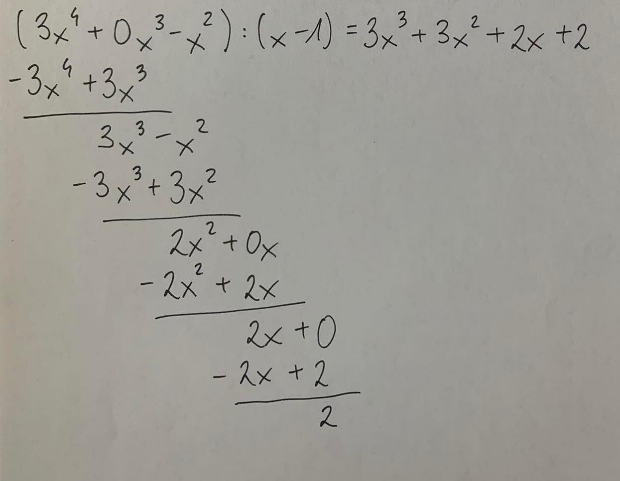 (3x⁴ + 0x³ - x²) : (x - 1) = 3x³ + 3x² + 2x + 2
-3x⁴ + 3x³
3x³ - x²
-3x³ + 3x²
2x² + 0x
-2x² + 2x
2x + 0
-2x + 2
2